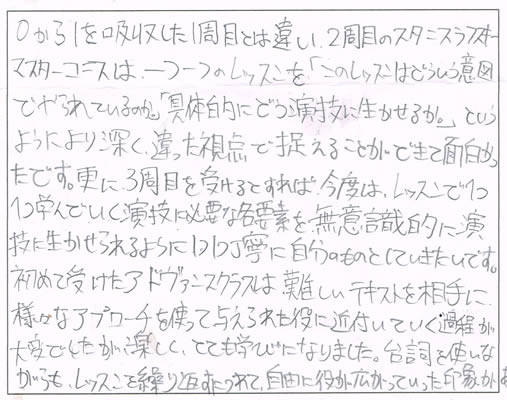 0から1を吸収した1周目とは違い、2周目のスタニスラフスキー
マスターコースは、一つ一つのレッスンを「このレッスンはどういう意図
でやられているのか。」「具体的にどう演技に生かせるか。」という
ようにより深く、違った視点で捉えることができて面白かっ
たです。更に、3周目を受けるとすれば、今度は、レッスンで1つ
1つ学んでいく演技に必要な各要素を無意識的に演
技に生かせられるように1つ1つ丁寧に自分のものとしていきたいです。
初めて受けたアドヴァンスクラスは、難しいテキストを相手に、
様々なアプローチを使って与えられた役に近付いていく過程が
大変でしたが、楽しく、とても学びになりました。台詞を使いな
がらも、レッスンを繰り返すにつれて、自由に役が広がっていった印象が